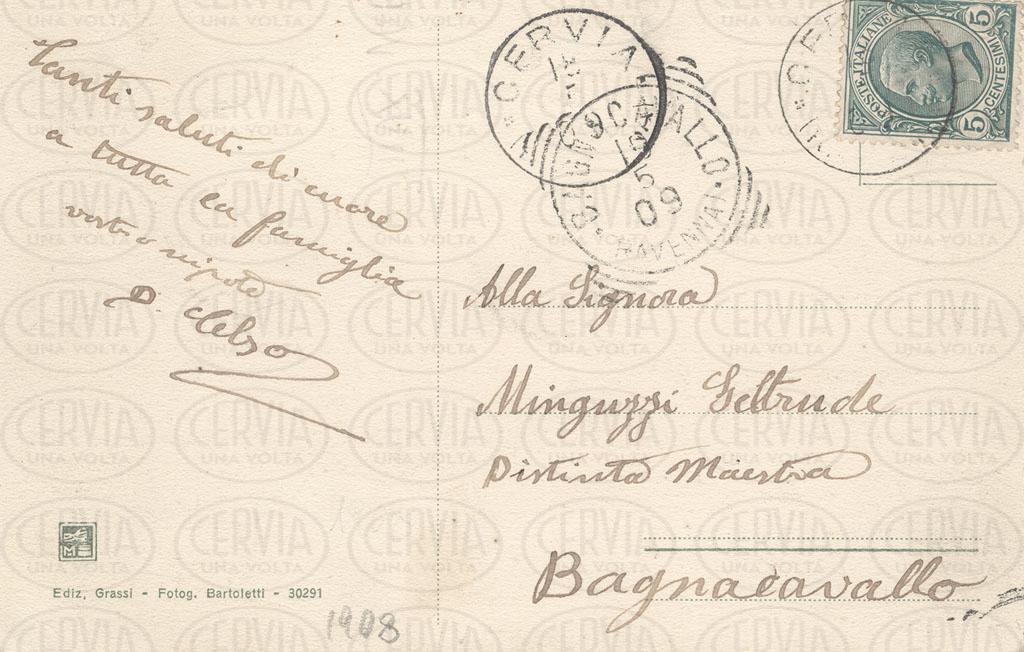 Tanti saluti di cuore
a tutta la famiglia
vostro nipote
D. Celso
Ediz. Grassi - Fotog. Bartoletti - 30291
1908
CERVIA
BAGNACAVALLO
(RAVENNA)
09
POSTE ITALIANE
5 CENTESIMI 5
Alla Signora
Minguzzi Geltrude
Distinta Maestra
Bagnacavallo
CERVIA
UNA VOLTA